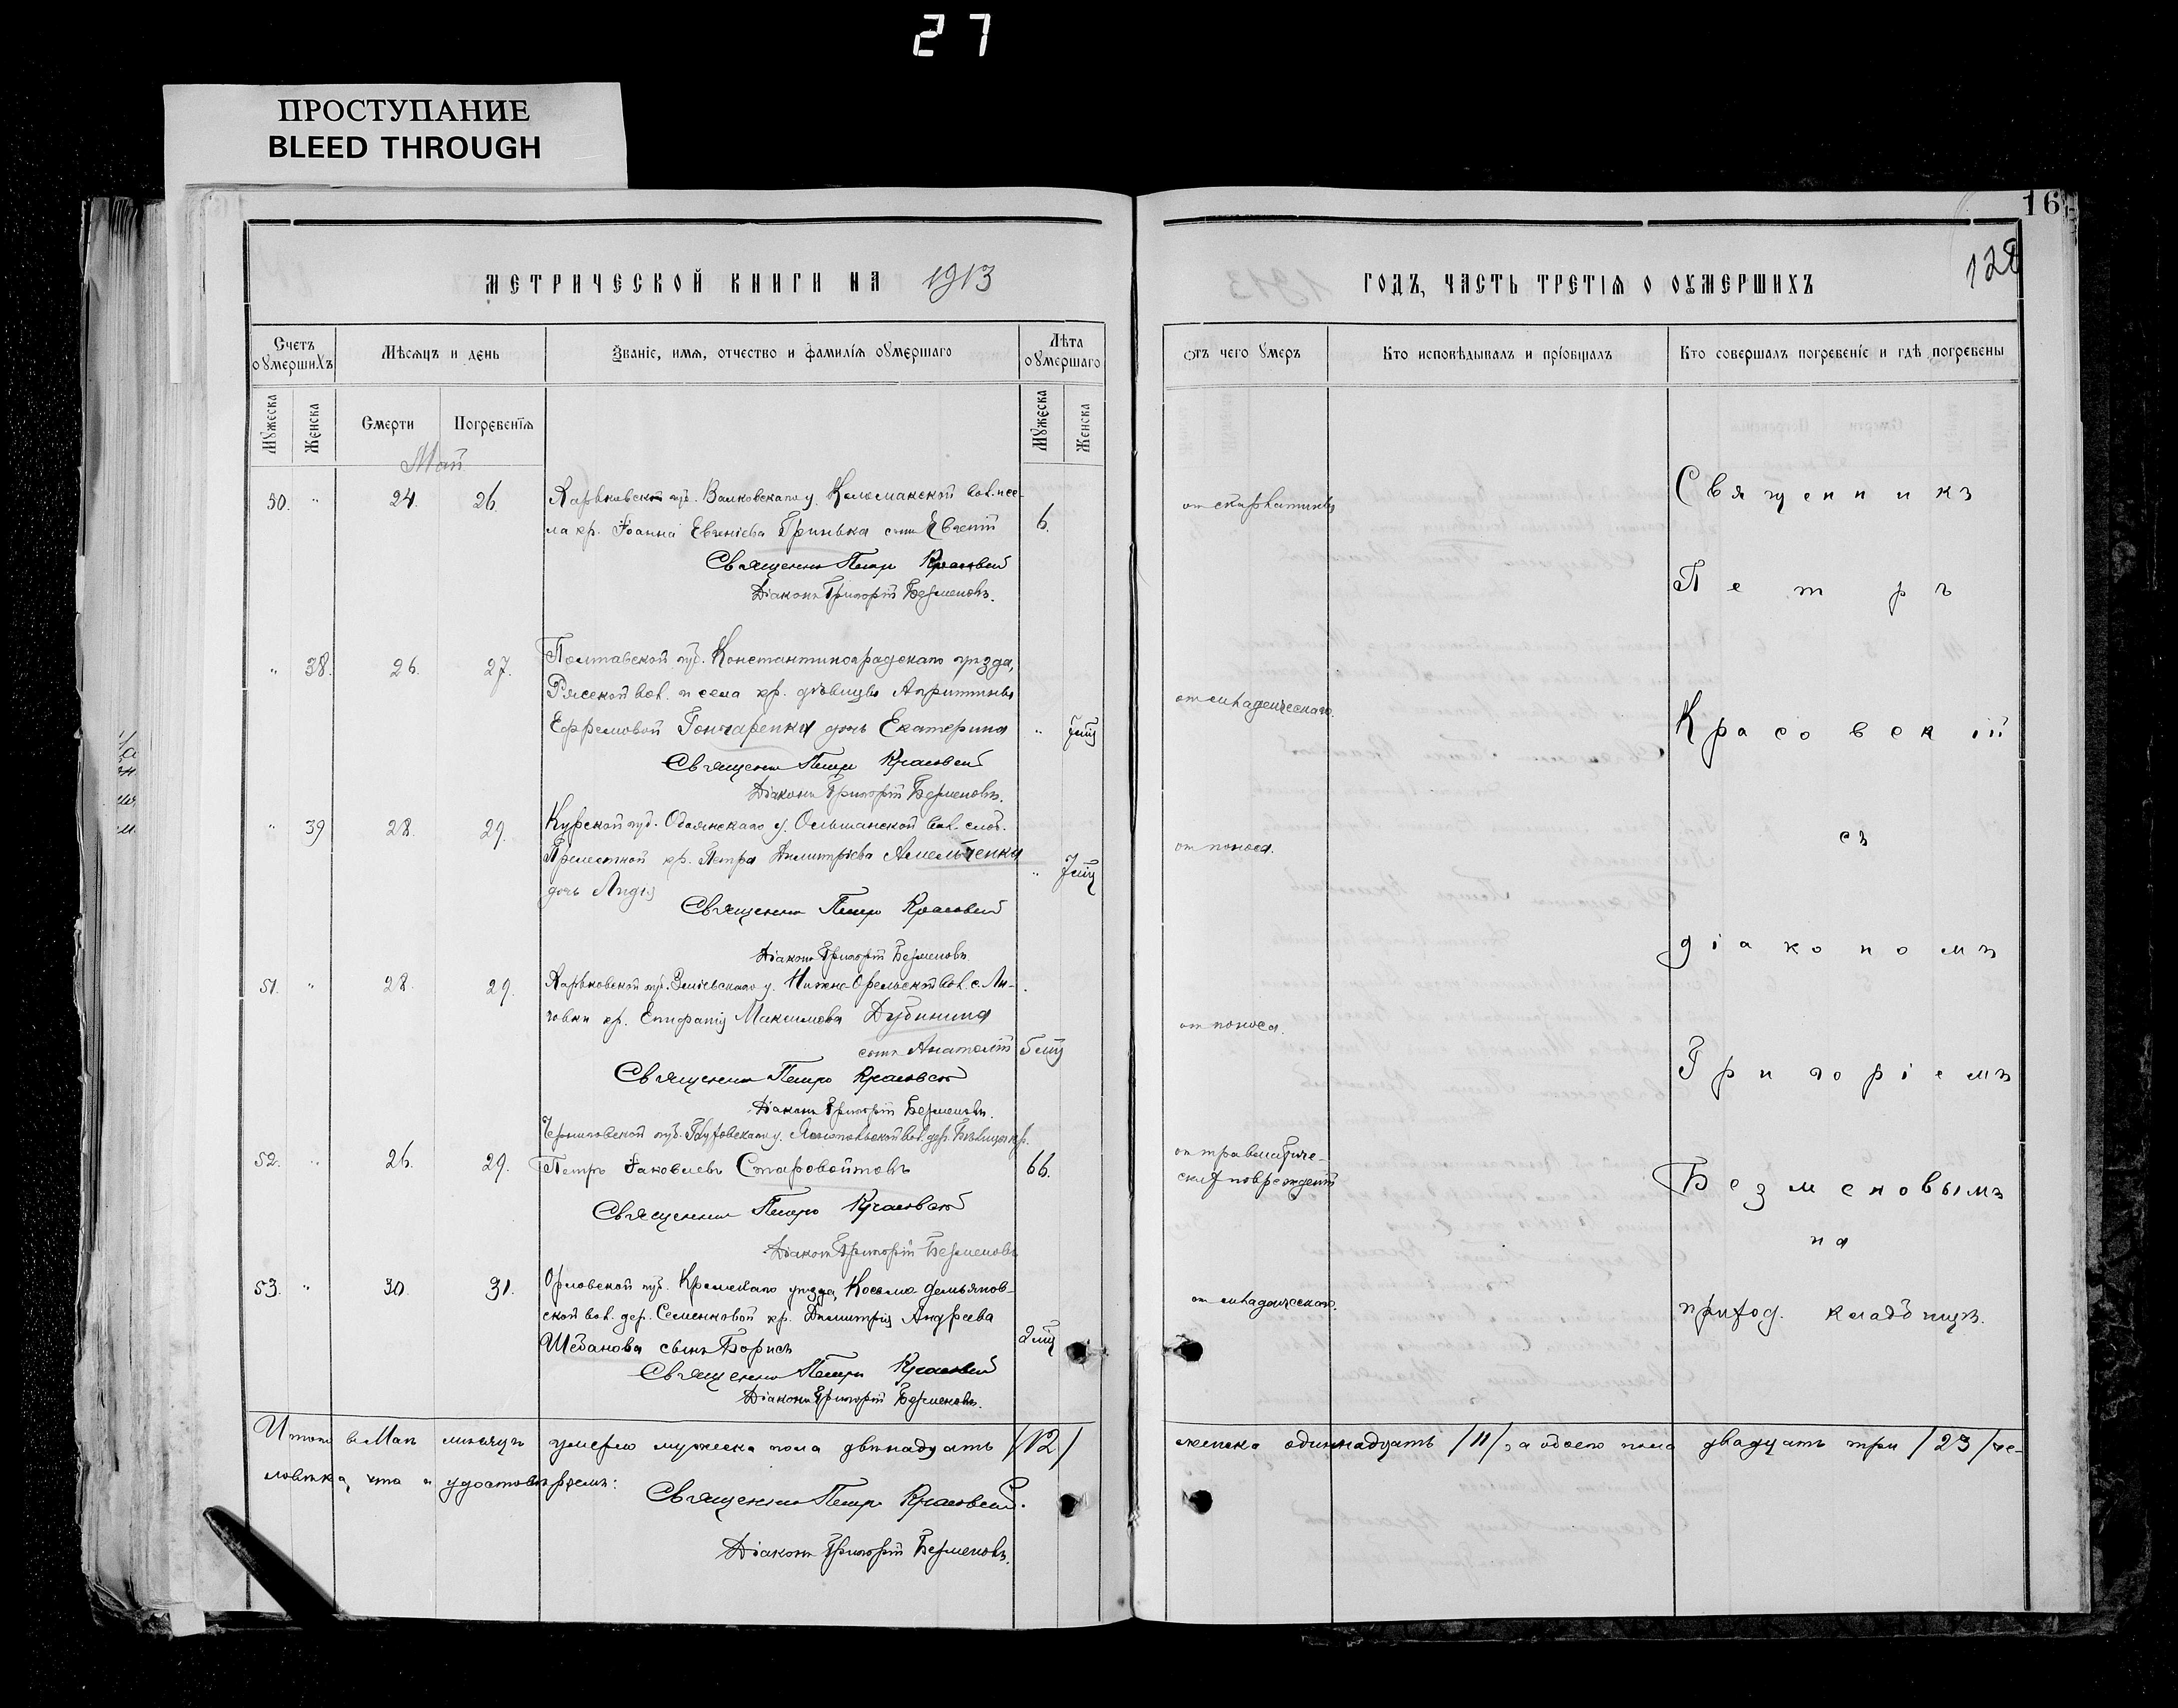 27
ПРОСТУПАНИЕ
BLEED THROUGH
16
128
МЕТРИЧЕСКОЙ КНИГИ НА 1913
ГОДЪ, ЧАСТЬ ТРЕТІЯ О ОУМЕРШИХЪ
Счетъ оумершихъ
Мѣсяцъ и день
Званіе, имя, отчество и фамилія оумершаго
Лѣта оумершаго
отъ чего умеръ
Кто исповѣдывалъ и пріобщалъ
Кто совершалъ погребеніе и гдѣ погребены
Мужеска
Женска
Смерти
Погребенія
Мужеска
Женска
Май
50. " 24. 26. Харьковской губ. Валковскаго у. Коломакской вол. и се-
ла кр. Іоанна Евгеніева Гринька сынъ 6.
от скарлатины
Священникъ Петръ Красовскій
Діаконъ Григорій Безменовъ.
" 38. 26. 27. Полтавской губ. Константиноградскаго уѣзда,
Ряской вол. и села кр. дѣвицы
Ефремовой Гончаренко дочь Екатерина "
Священникъ Петръ Красовскій
Діаконъ Григорій Безменовъ.
" 39 28. 29. Курской губ. Обоянскаго у. Ольшанской вол. слоб.
кр. Петра Димитріева Амельченко " 7 мц
от поноса.
дочь Лидія
Священникъ Петръ Красовскій
Діаконъ Григорій Безменовъ
51. " 28. 29. Харьковской губ. Зміевскаго у. Нижне-Орельской вол. с. Ли-
говки кр. Епифанія Максимова Дубинина
от поноса.
сынъ Анатолій 5 мц
Священникъ Петръ Красовскій
Діаконъ Григорій Безменовъ.
Черниговской губ. у. вол. дер. кр.
52. " 26. 29. Петръ Іаковлевъ Старовойтовъ 66.
от травматиче-
скаго поврежденія
Священникъ Петръ Красовскій
Діаконъ Григорій Безменовъ
53. " 30. 31. Орловской губ. Кромскаго уѣзда, Косьмо-Демьянов-
ской вол. дер. Семенковой кр. Димитрія Андреева
сынъ Борисъ 2 мц
Священникъ Петръ Красовскій
Діаконъ Григорій Безменовъ.
Священникъ
Петръ
Красовскій
съ
діакономъ
Григоріемъ
Безменовымъ
на
приход. кладбищѣ.
Итого въ Маѣ мѣсяцѣ умерло мужеска пола двѣнадцать /12/
женска одиннадцать /11/, а обоего пола двадцать три /23/ че-
ловѣка, что и удостовѣряемъ:
Священникъ Петръ Красовскій.
Діаконъ Григорій Безменовъ.